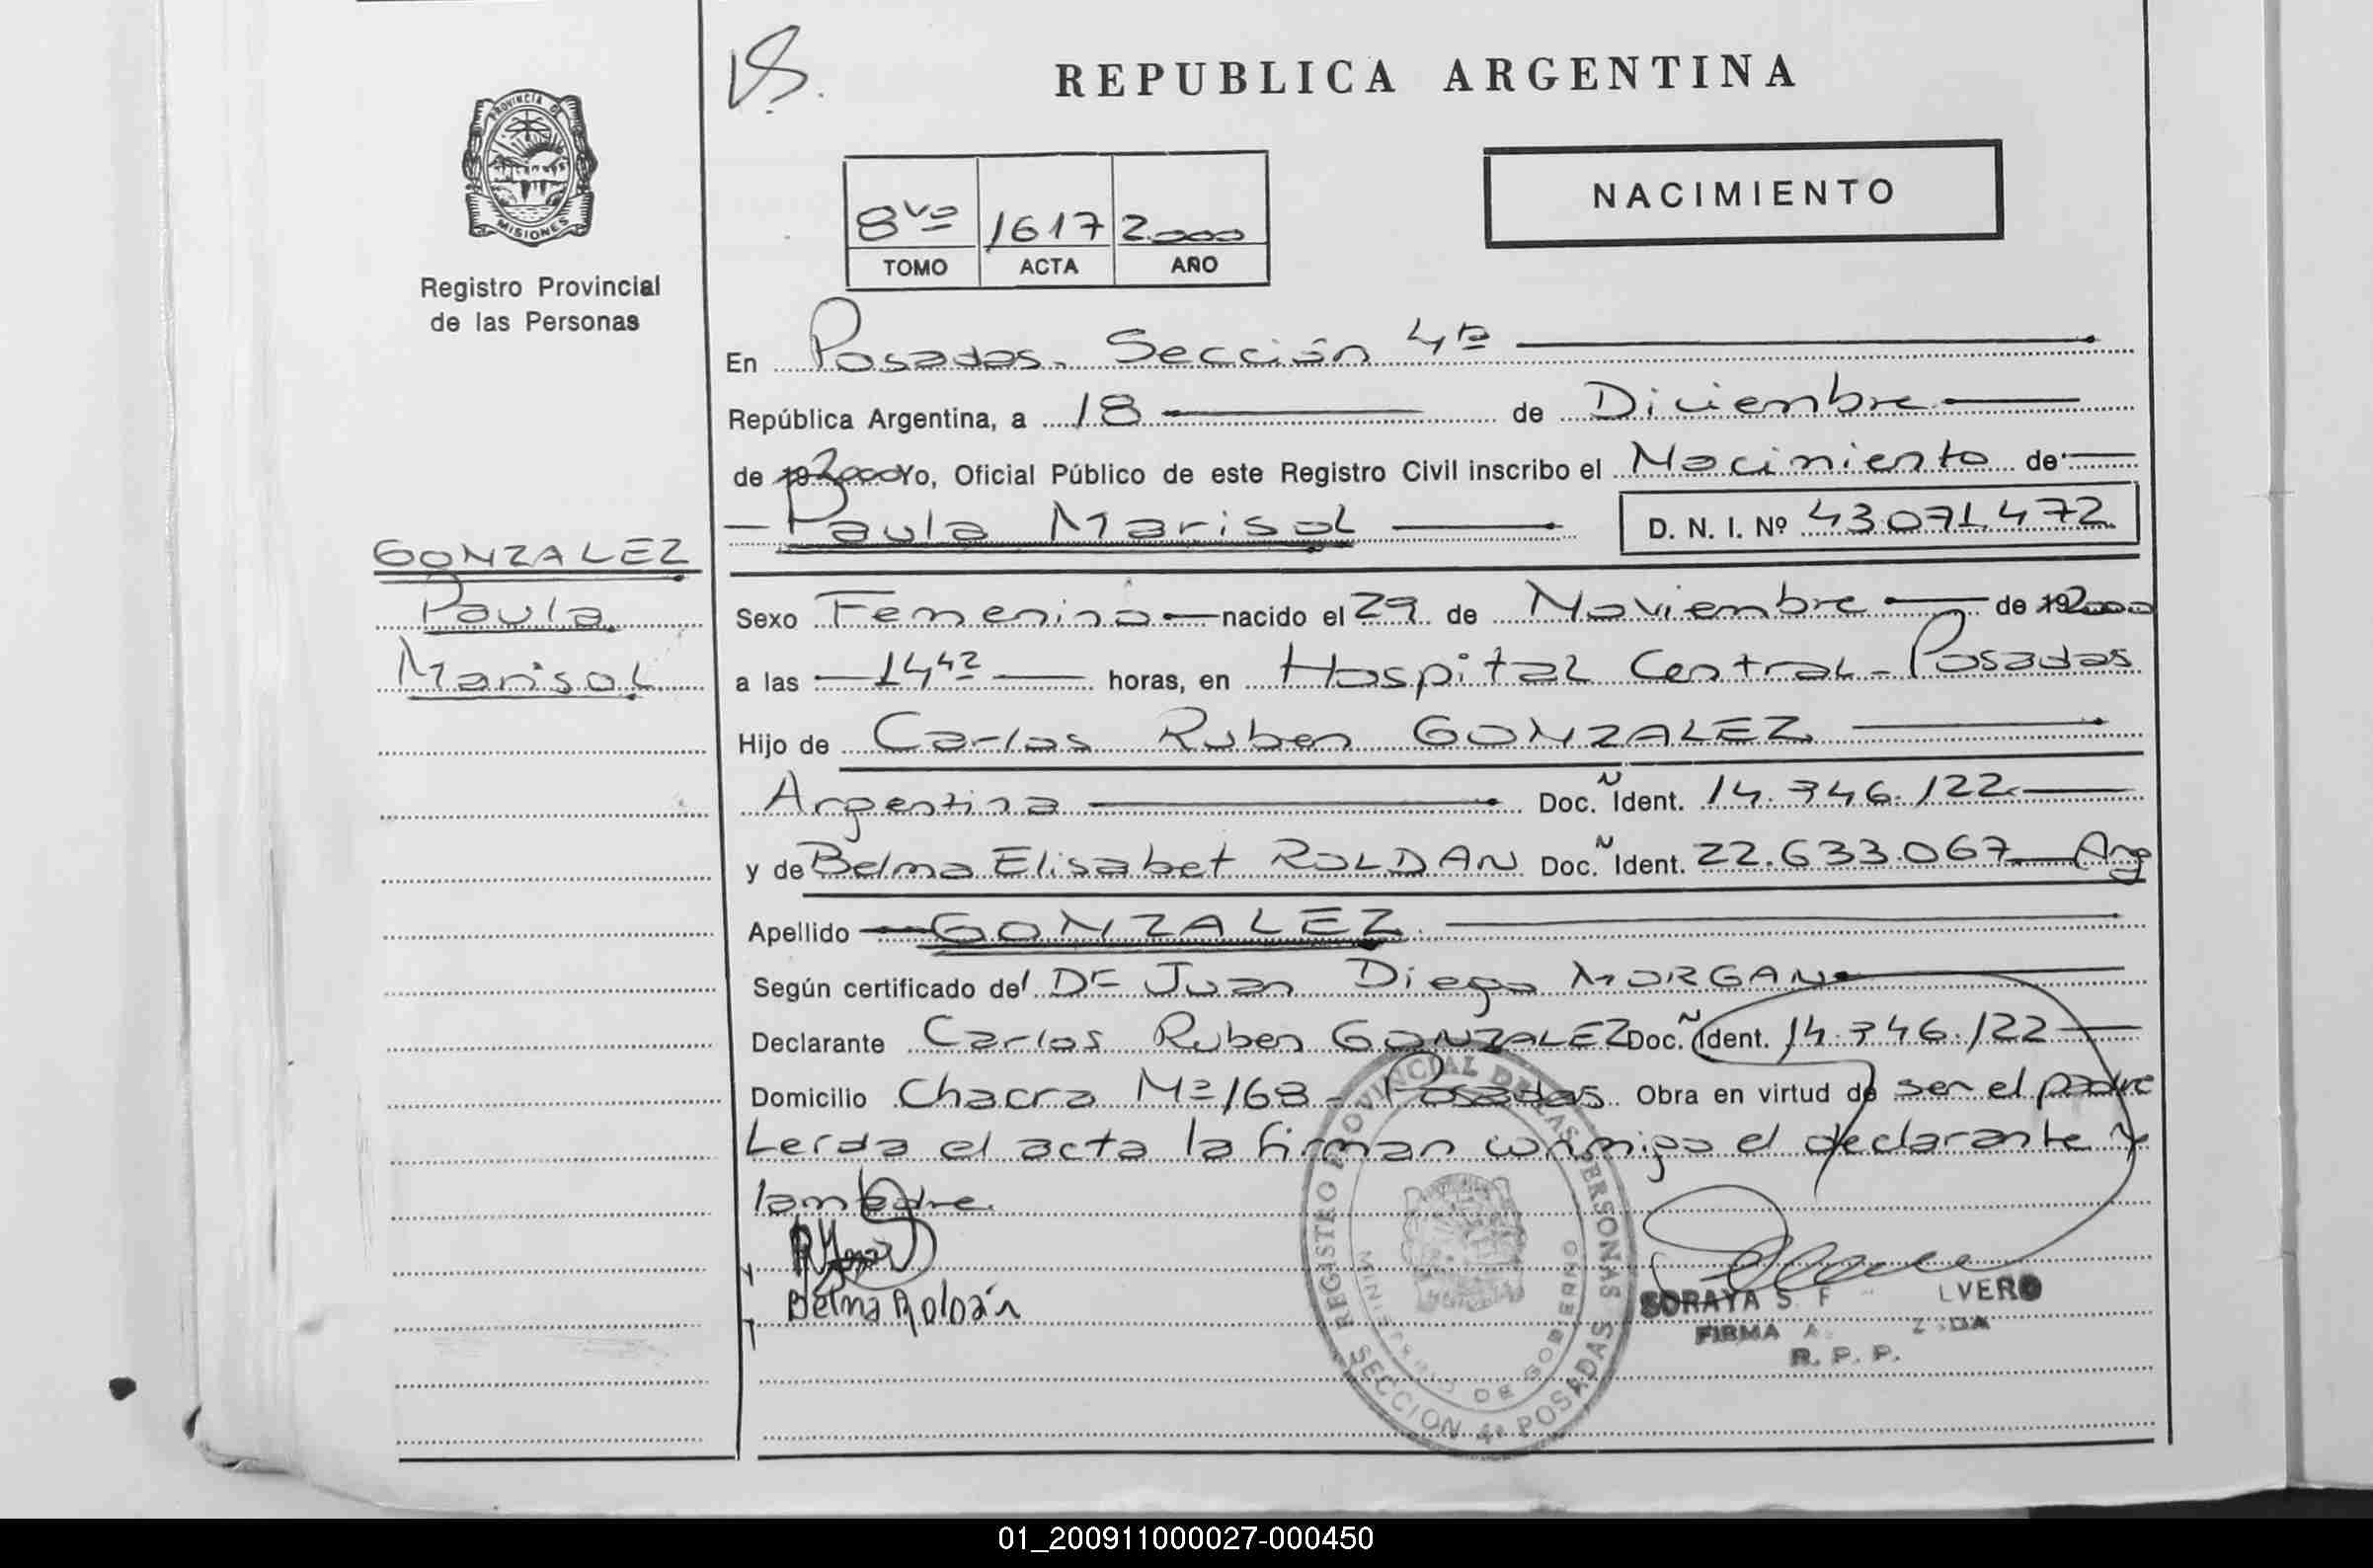 PROVINCIA D
MISIONES
Registro Provincial
de las Personas
REPUBLICA ARGENTINA
NACIMIENTO
8vo 1617 2.000
TOMO ACTA AÑO
En Posadas. Sección 4ta
República Argentina, a 18 de Diciembre
de 19 2000 Yo, Oficial Público de este Registro Civil inscribo el Nacimiento de
Paula Marisol D. N. I. Nº 43.071.472
GONZALEZ
Paula
Marisol
Sexo Femenino nacido el 29 de Noviembre de 19 2000
a las 14 42 horas, en Hospital Central - Posadas
Hijo de Carlos Ruben GONZALEZ
Argentina Doc. Ñ Ident. 14.346.122
y de Belma Elisabet ROLDAN Doc. Ñ Ident. 22.633.067 Arg
Apellido GONZALEZ
Según certificado del Dr Juan Diego MORGAN
Declarante Carlos Ruben GONZALEZ Doc. Ñ Ident. 14.346.122
Domicilio Chacra Nº 168 - Posadas Obra en virtud de ser el padre
Leída el acta la firman conmigo el declarante y
la madre.
Belma Roldán
REGISTRO PROVINCIAL DE LAS PERSONAS
MINISTERIO DE GOBIERNO
SECCION 4ª POSADAS
SORAYA S. F LVERO
FIRMA A Z DA
R. P. P.
01_200911000027-000450